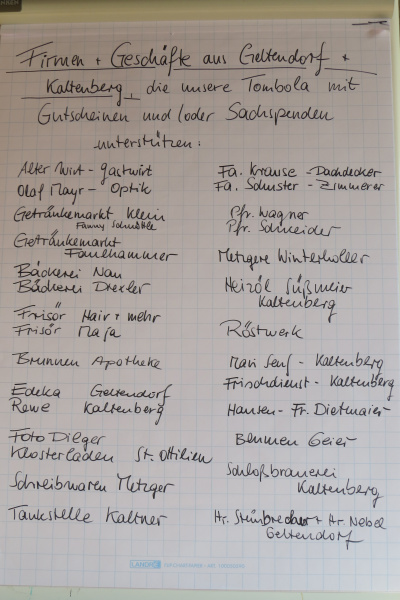 Firmen + Geschäfte aus Geltendorf +
Kaltenberg, die unsere Tombola mit
Gutscheinen und/oder Sachspenden
unterstützen:
Alter Wirt - Gastwirt
Olaf Mayr - Optik
Getränkemarkt Klein
Fanny
Getränkemarkt
Faulhammer
Bäckerei Nau
Bäckerei Drexler
Frisör Hair + mehr
Frisör Maja
Brunnen Apotheke
Edeka Geltendorf
Rewe Kaltenberg
Foto Dilger
Klosterladen St. Ottilien
Schreibwaren Metzger
Tankstelle Kaltner
Fa. Krause - Dachdecker
Fa. Schuster - Zimmerer
Pfr. Wagner
Pfr. Schneider
Metzgere Winterholler
Heizöl Süßmeier
Kaltenberg
Röstwerk
Mari Senf - Kaltenberg
Frischdienst - Kaltenberg
Hansen - Fr. Dietmaier
Blumen Geier
Schloßbrauerei
Kaltenberg
Hr. Steinbrecher + Hr. Nebel
Geltendorf
LANDRÉ